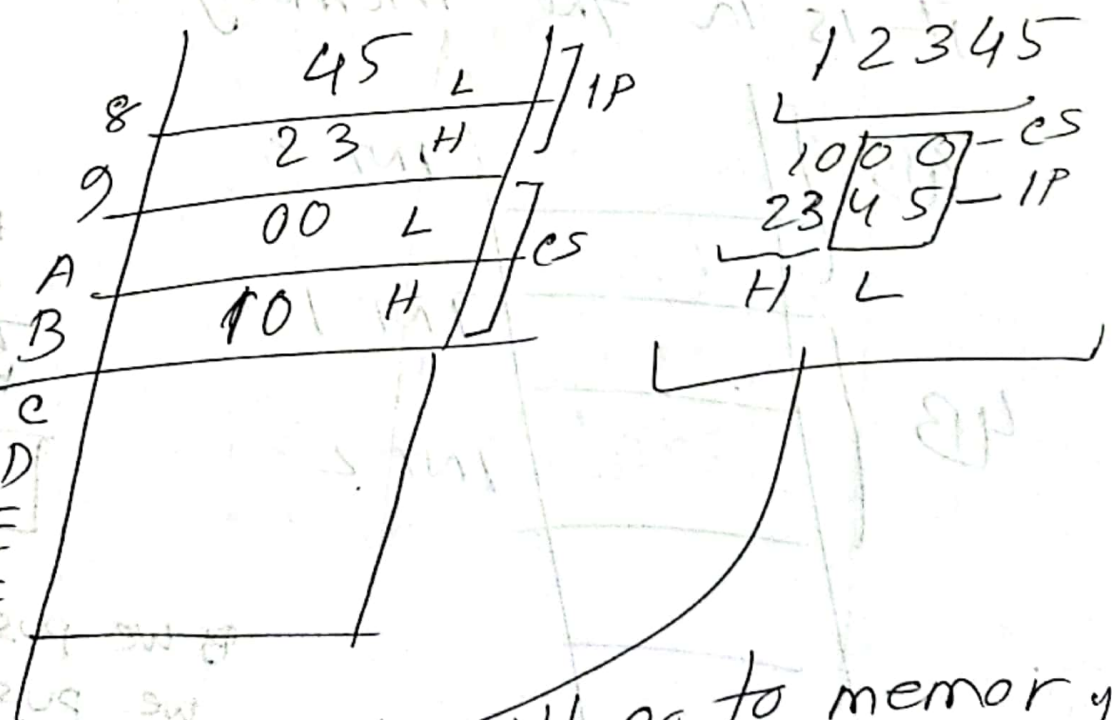 45 L ] IP
8
23 H
9
00 L ] CS
A
10 H
B
C
D
12345
1000 - CS
2345 - IP
H L
to memory